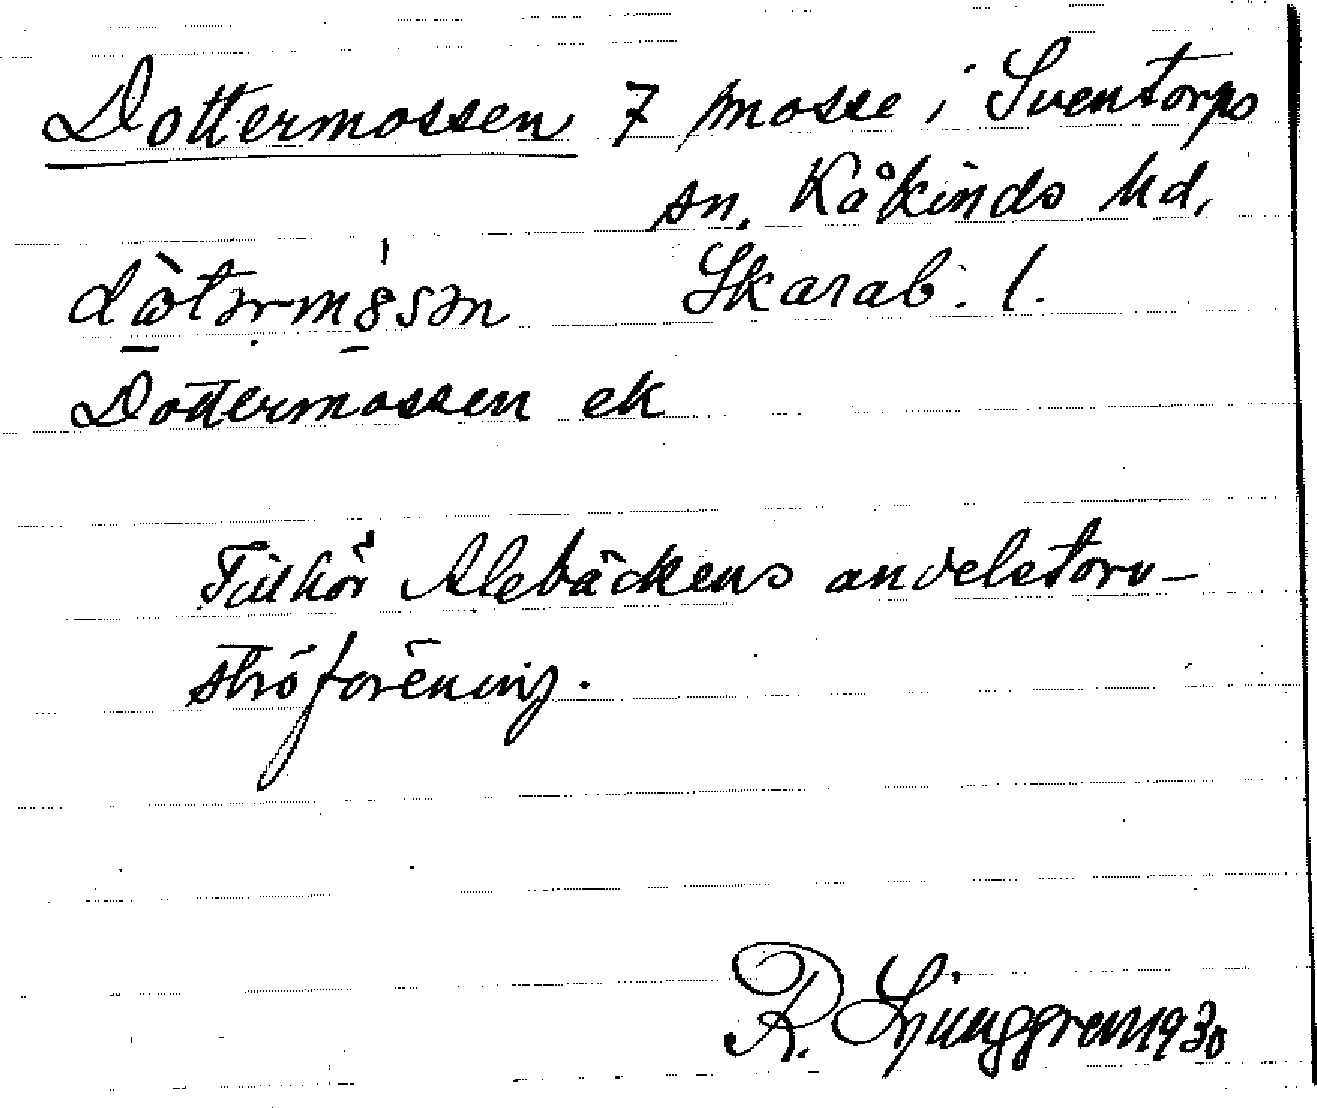 Dottermossen 7 mosse i Sventorps
sn. Kåkinds hd.
Skarab. l.
Dottermossen ek
Tillhör Alebäckens andelstorv-
ströförening.
R. Ljunggren 1930